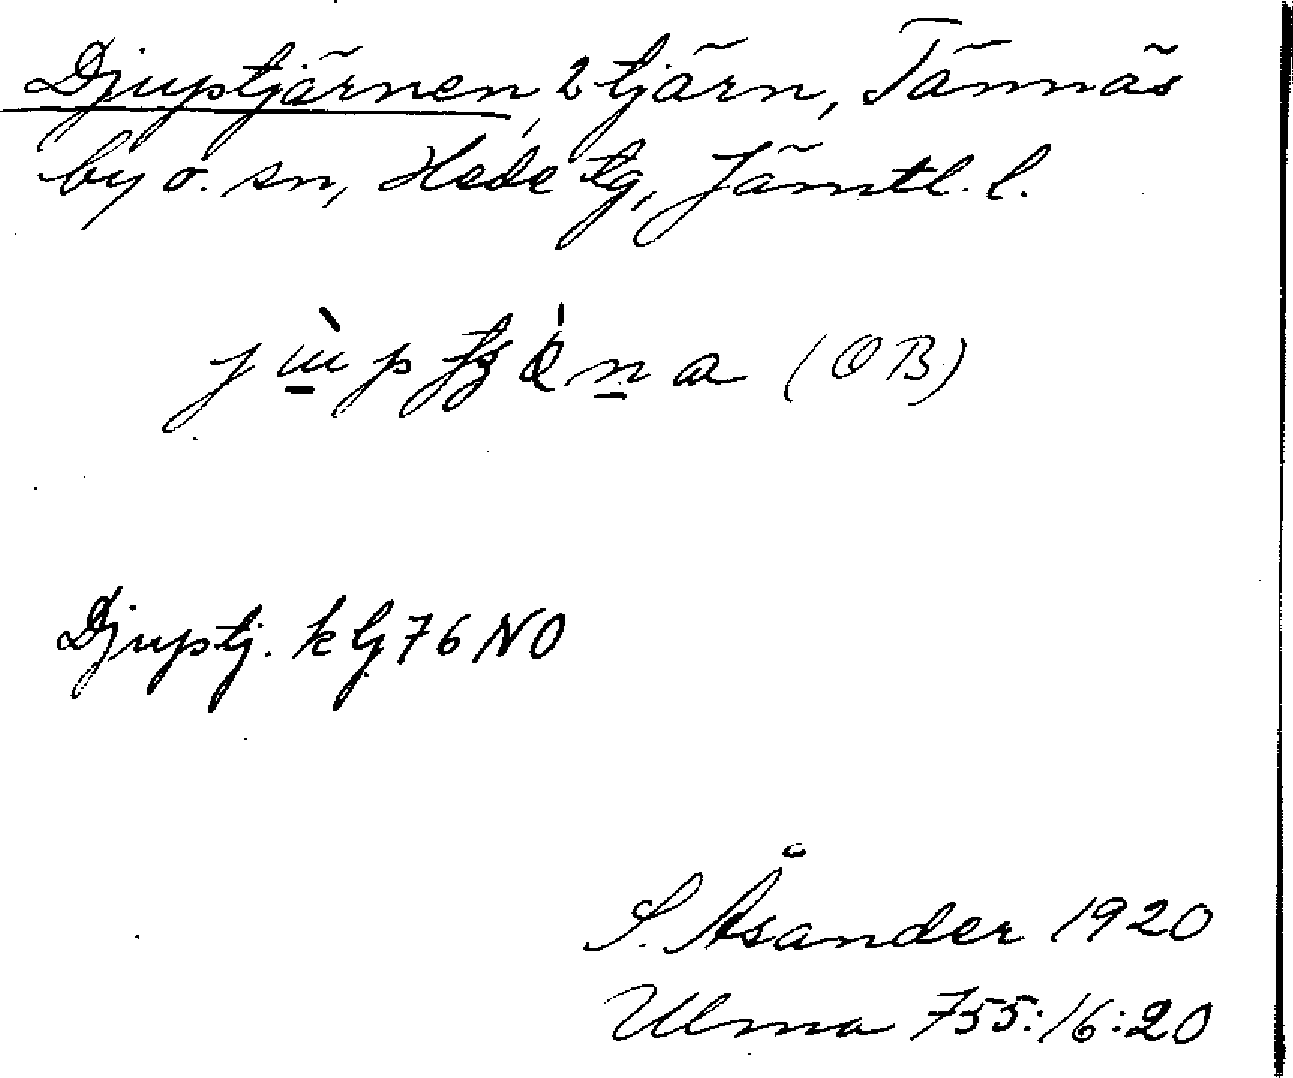 Djuptjärnen, 2 tjärn, Tännäs
by o. sn, Hede tg, Jämtl. l.
(OB)
Djuptj. k lj 76 NO
S. Åsander 1920
Ulma 755:16:20